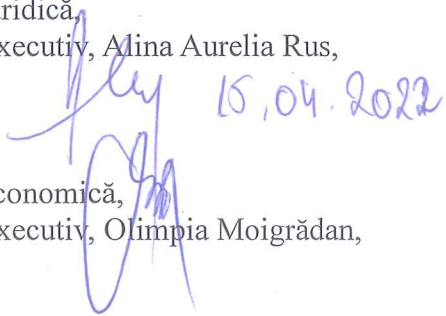 ridică,
xecutiv, Alina Aurelia Rus,
15.04.2022
conomică,
xecutiv, Olimpia Moigrădan,